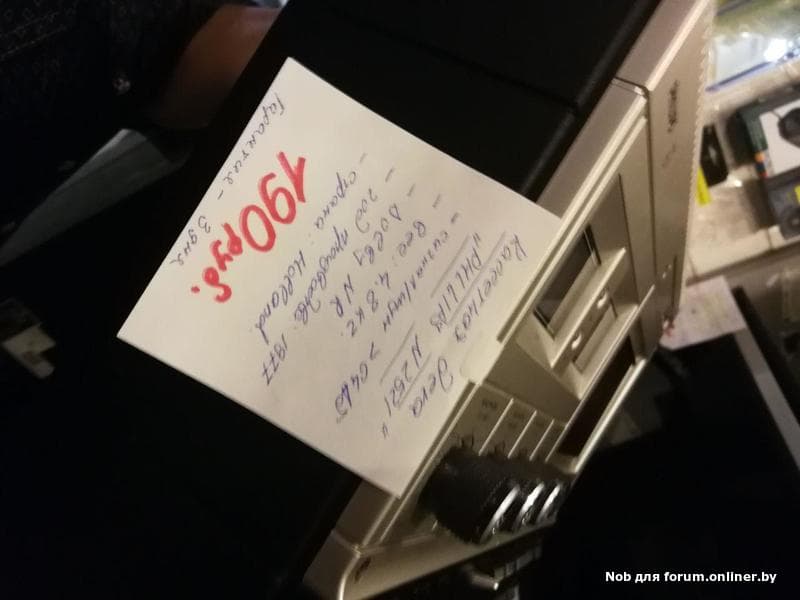 Кассетная дека
"PHILIPS N 2521"
- сигнал/шум > 64 дБ
- Вес: 4.8 кг.
- DOLBY NR
- год произв-ва: 1977
- страна: Holland.
190 руб.
Гарантия - 3 дня
Nob для forum.onliner.by